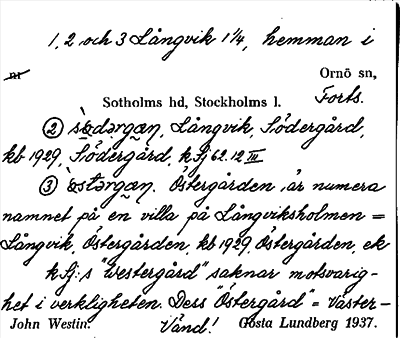 1, 2 och 3 Långvik 1 1/4, hemman i
nr Ornö sn,
Sotholms hd, Stockholms l. Forts.
② sö̀dərgɑn, Långvik, Södergård,
kb 1929, Södergård, k Sj 62. 12 III
③ ö̀stərgɑn. Östergården är numera
namnet på en villa på Långviksholmen =
Långvik, Östergården, kb 1929, Östergården, ek
k Sj:s "Westergård" saknar motsvarig-
het i verkligheten. Ders "Östergård" = Väster-
Vånd!
John Westin. Gösta Lundberg 1937.